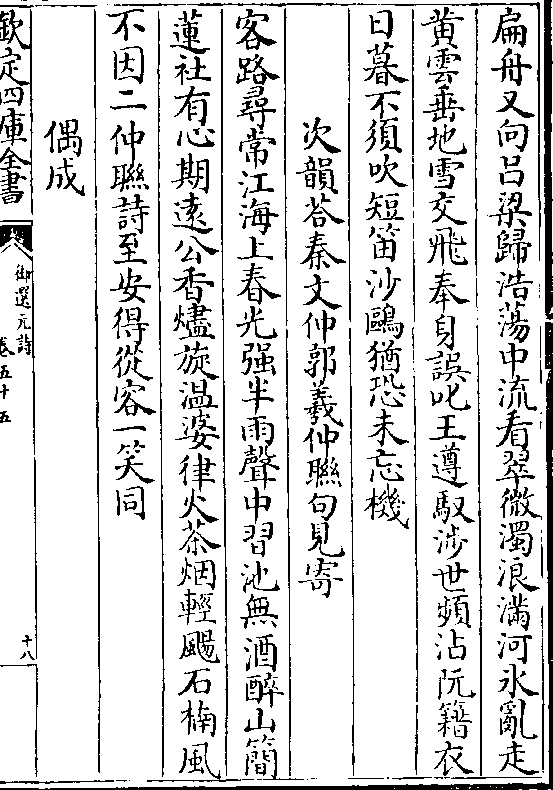 扁舟又向吕梁歸浩蕩中流看翠微濁浪滿河氷亂走
黄雲垂地雪交飛奉身誤叱王遵馭涉世頻沾阮籍衣
日暮不須吹短笛沙鷗猶恐未忘機
次韻荅秦文仲郭羲仲聯句見寄
客路尋常江海上春光强半雨聲中習池無酒醉山簡
蓮社有心期遠公香燼旋温婆律火茶烟輕颺石楠風
不因二仲聯詩至安得從容一笑同
偶成
欽定四庫全書
御選元詩
卷五十五
十八